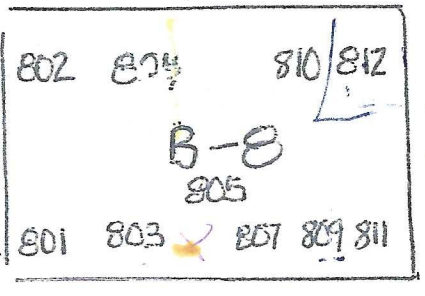 802 804 810 812
B-8
805
801 803 807 809 811